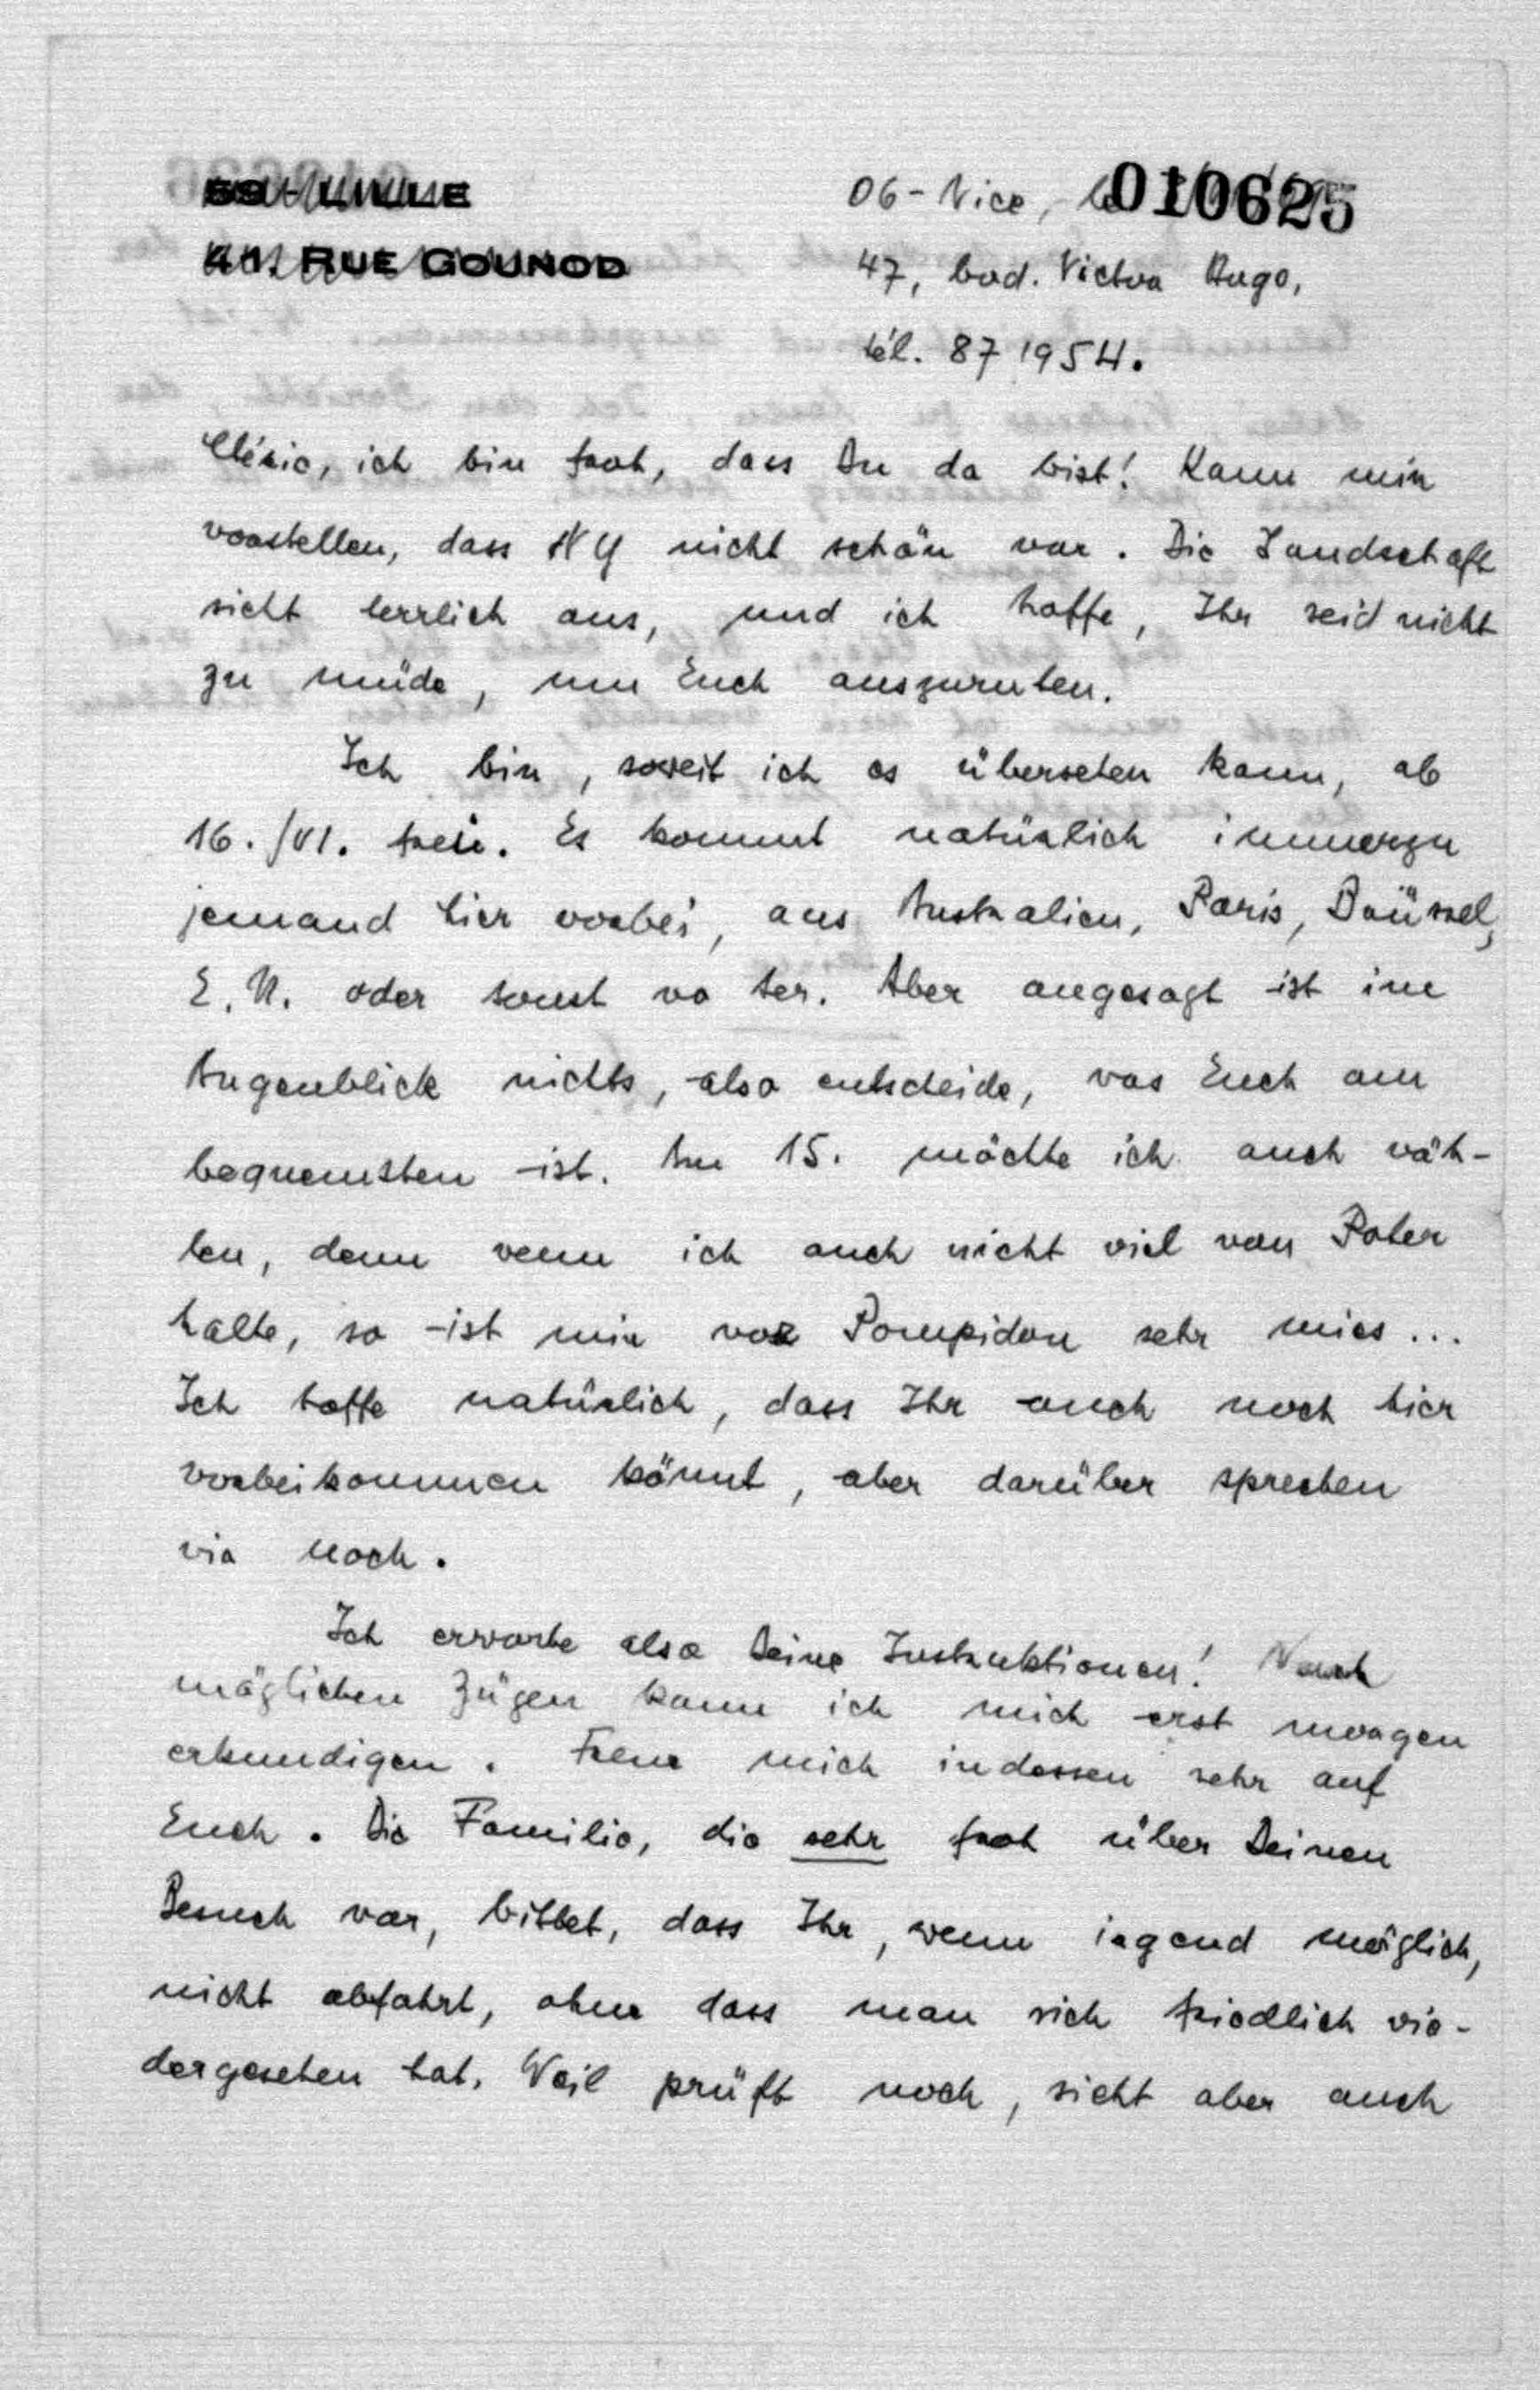 59 - LILLE
41. RUE GOUNOD
06 - Nice, le
010625
47, bvd. Victor Hugo,
tél. 87 19 54.
Chérie, ich bin froh, dass Du da bist! Kann mir
vorstellen, dass NY nicht schön war. Die Landschaft
sieht herrlich aus, und ich hoffe, Ihr seid nicht
zu müde, um Euch auszuruhen.
Ich bin, soweit ich es übersehen kann, ab
16./VI. frei. Es kommt natürlich immerzu
jemand hier vorbei, aus Australien, Paris, Brüssel,
E.N. oder sonst wo her. Aber angesagt ist im
Augenblick nichts, also entscheide, was Euch am
bequemsten ist. Am 15. möchte ich auch wäh-
len, denn wenn ich auch nicht viel von Poher
halte, so ist mir vor Pompidou sehr mies...
Ich hoffe natürlich, dass Ihr auch noch hier
vorbeikommen könnt, aber darüber sprechen
wir noch.
Ich erwarte also Deine Instruktionen! Nach
möglichen Zügen kann ich mich erst morgen
erkundigen. Freue mich indessen sehr auf
Euch. Die Familie, die sehr froh über Deinen
Besuch war, bittet, dass Ihr, wenn irgend möglich,
nicht abfahrt, ohne dass man sich friedlich wie-
dergesehen hat. Weil prüft noch, sieht aber auch